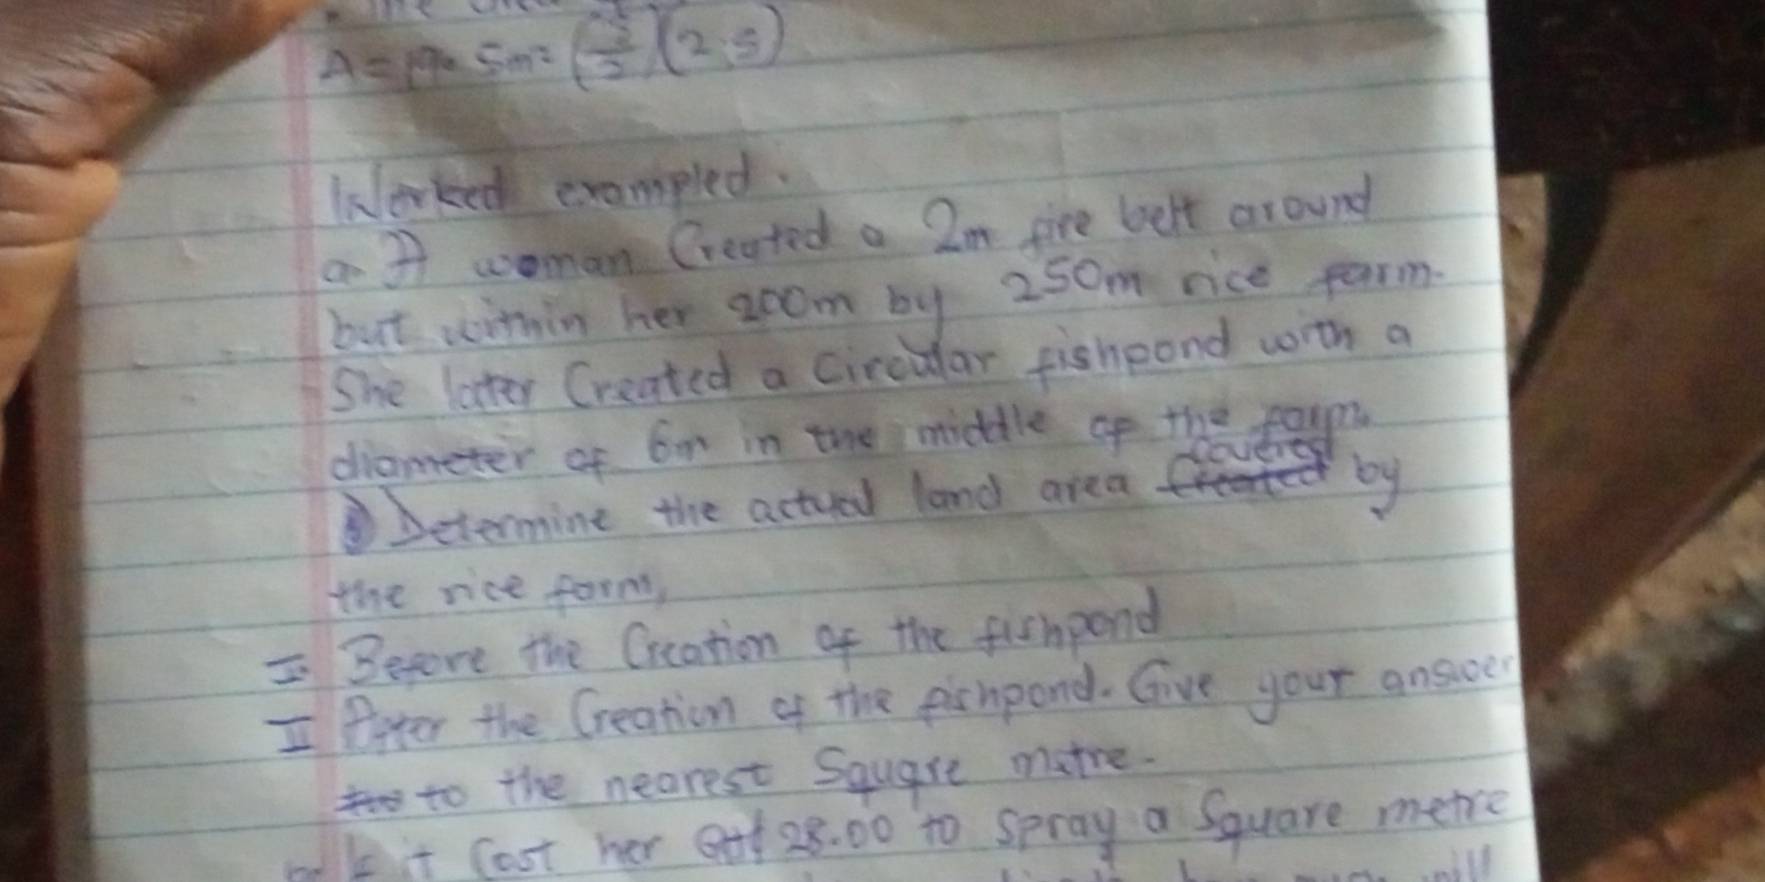 A = 5m²
Worked exampled.
a. A woman Created a 2m fire belt around
but within her 200m by 250m rice farm.
She later Created a Circular fishpond with a
diameter of 6m in the middle of the farm.
Determine the actual land area covered by
the rice farm,
I. Before the Creation of the fishpond
II After the Creation of the fishpond. Give your answer
to the nearest Square metre.
If it Cost her GH¢ 28.00 to Spray a Square metre